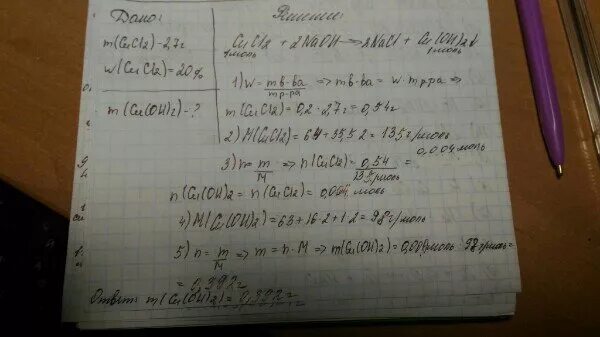 Дано:
m(CuCl2) - 27г
w(CuCl2) = 20%
m(Cu(OH)2) - ?
Решение:
CuCl2 + 2NaOH → 2NaCl + Cu(OH)2↓
1 моль 1 моль
1) w = mв-ва/mр-ра => mв-ва = w · mр-ра =>
m(CuCl2) = 0,2 · 2,7г = 0,54г
2) M(CuCl2) = 64 + 35,5·2 = 135 г/моль
3) n = m/M => n(CuCl2) = 0,54/135г/моль = 0,004 моль
n(Cu(OH)2 = n(CuCl2) = 0,004 моль
4) M(Cu(OH)2) = 63 + 16·2 + 1·2 = 98 г/моль
5) n = m/M => m = n·M => m(Cu(OH)2) = 0,004моль · 98г/моль =
= 0,392г
Ответ: m(Cu(OH)2) = 0,392г